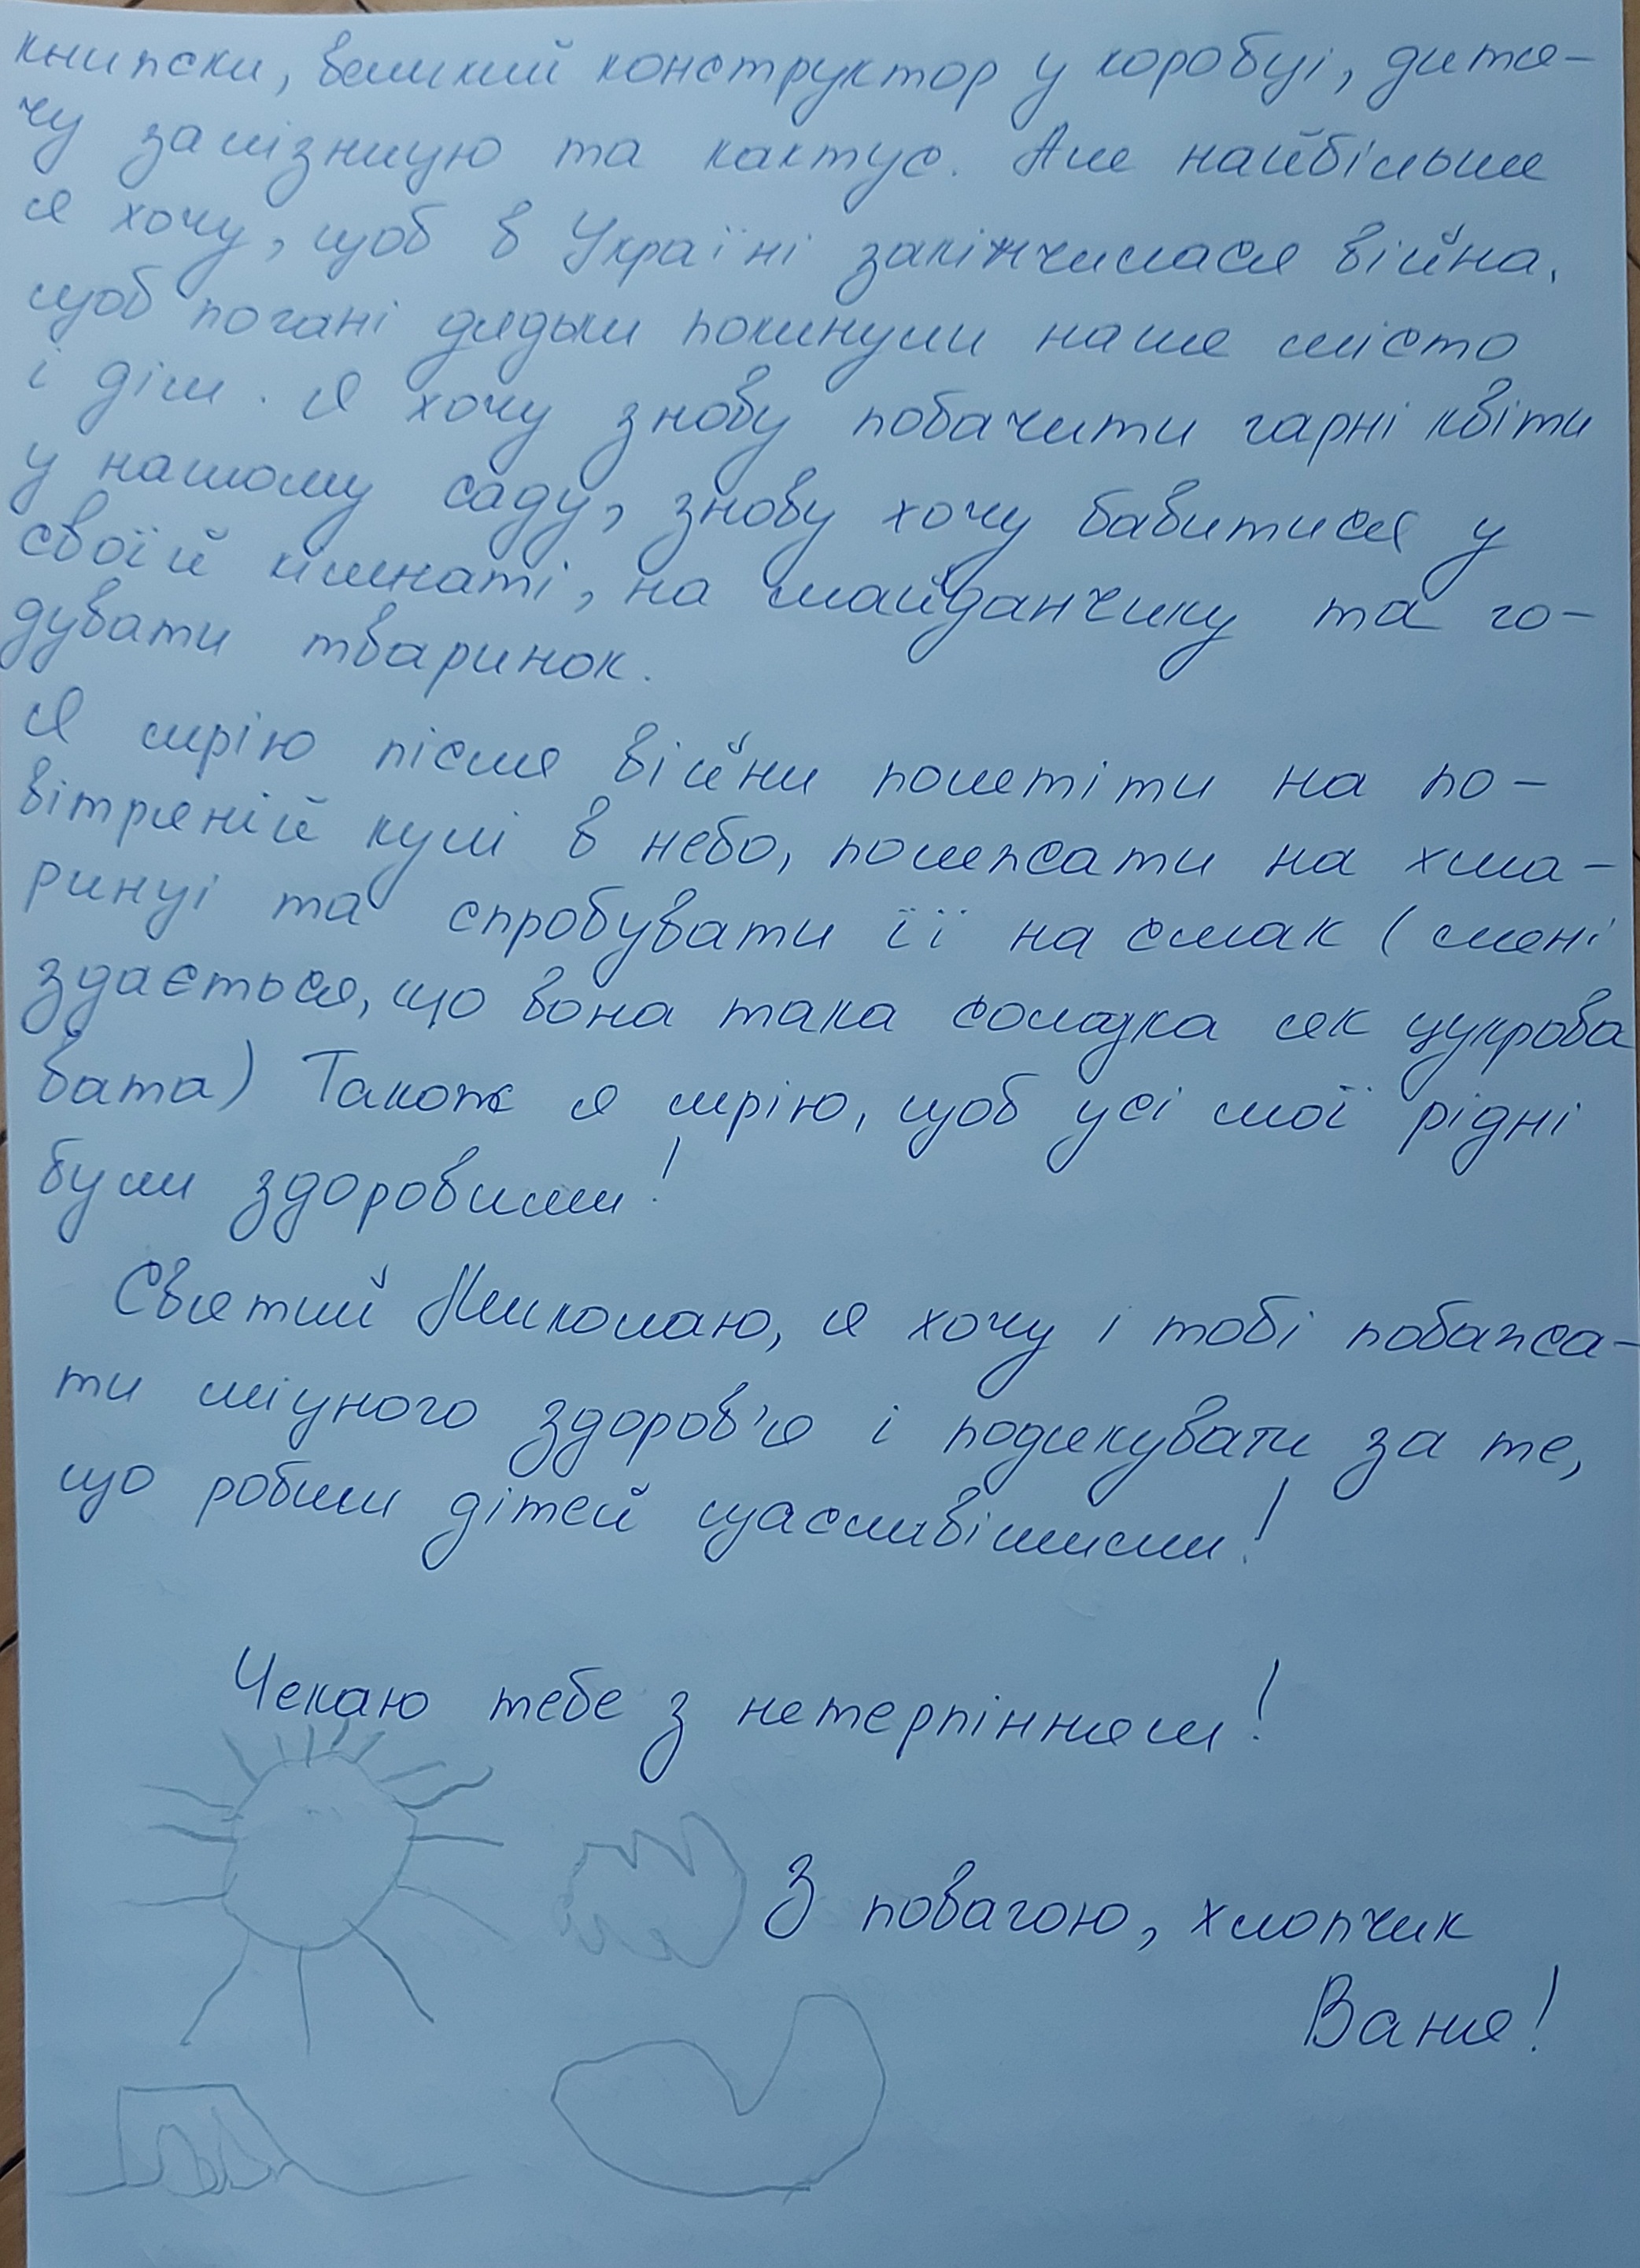 книжки, великий конструктор у коробці, дитя-
чу залізницю та кактус. Але найбільше
я хочу, щоб в Україні закінчилася війна,
щоб погані дядьки покинули наше місто
і дім. Я хочу знову побачити гарні квіти
у нашому саду, знову хочу бавитися у
своїй кімнаті, на майданчику та го-
дувати тваринок.
Я мрію після війни полетіти на по-
вітряній кулі в небо, полежати на хма-
ринці та спробувати її на смак (мені
здається, що вона така солодка як цукрова
вата) Також я мрію, щоб усі мої рідні
були здоровими!
Святий Миколаю, я хочу і тобі побажа-
ти міцного здоров'я і подякувати за те,
що робиш дітей щасливішими!
Чекаю тебе з нетерпінням!
З повагою, хлопчик
Ваня!